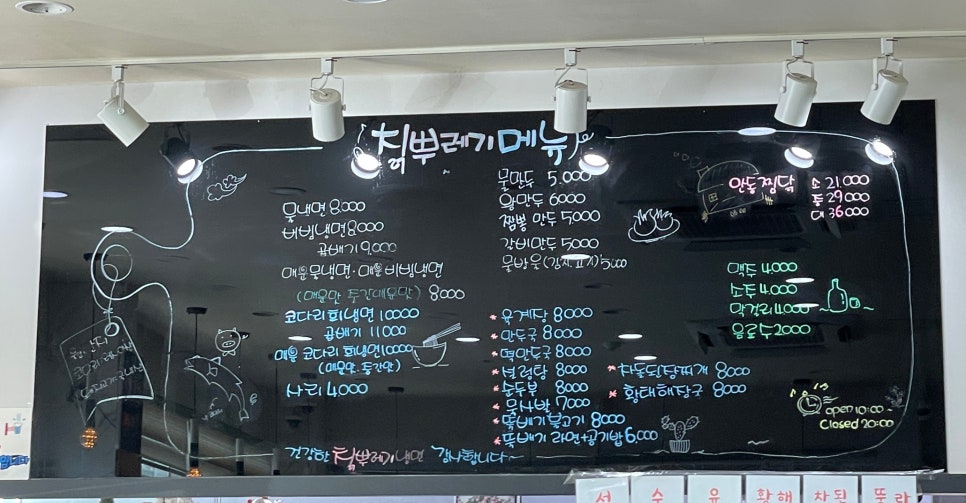 칡뿌레기 메뉴
물냉면 8000
비빔냉면 8000
곱배기 9,000
매운물냉면·매운비빔냉면
(매운맛 중간매운맛) 8000
코다리회냉면 10000
곱배기 11000
매운 코다리 회냉면 10000
(매운맛·중간맛)
사리 4,000
물만두 5.000
왕만두 6000
짬뽕 만두 5,000
갈비만두 5000
5000
* 육개탕 8000
* 만두국 8000
* 떡만두국 8000
* 설렁탕 8000
* 순두부 8000
* 7000
* 뚝배기불고기 8000
* 뚝배기 라면+공기밥 6,000
* 차돌된장찌개 8000
* 황태해장국 8000
안동찜닭 소 21.000
중 29000
대 36000
맥주 4.000
소주 4.000
막걸리 4.000
음료수 2000
open 10:00~
Closed 20:00
건강한 칡뿌레기냉면 감사합니다~
석 수 유 황해 차된 뚝라